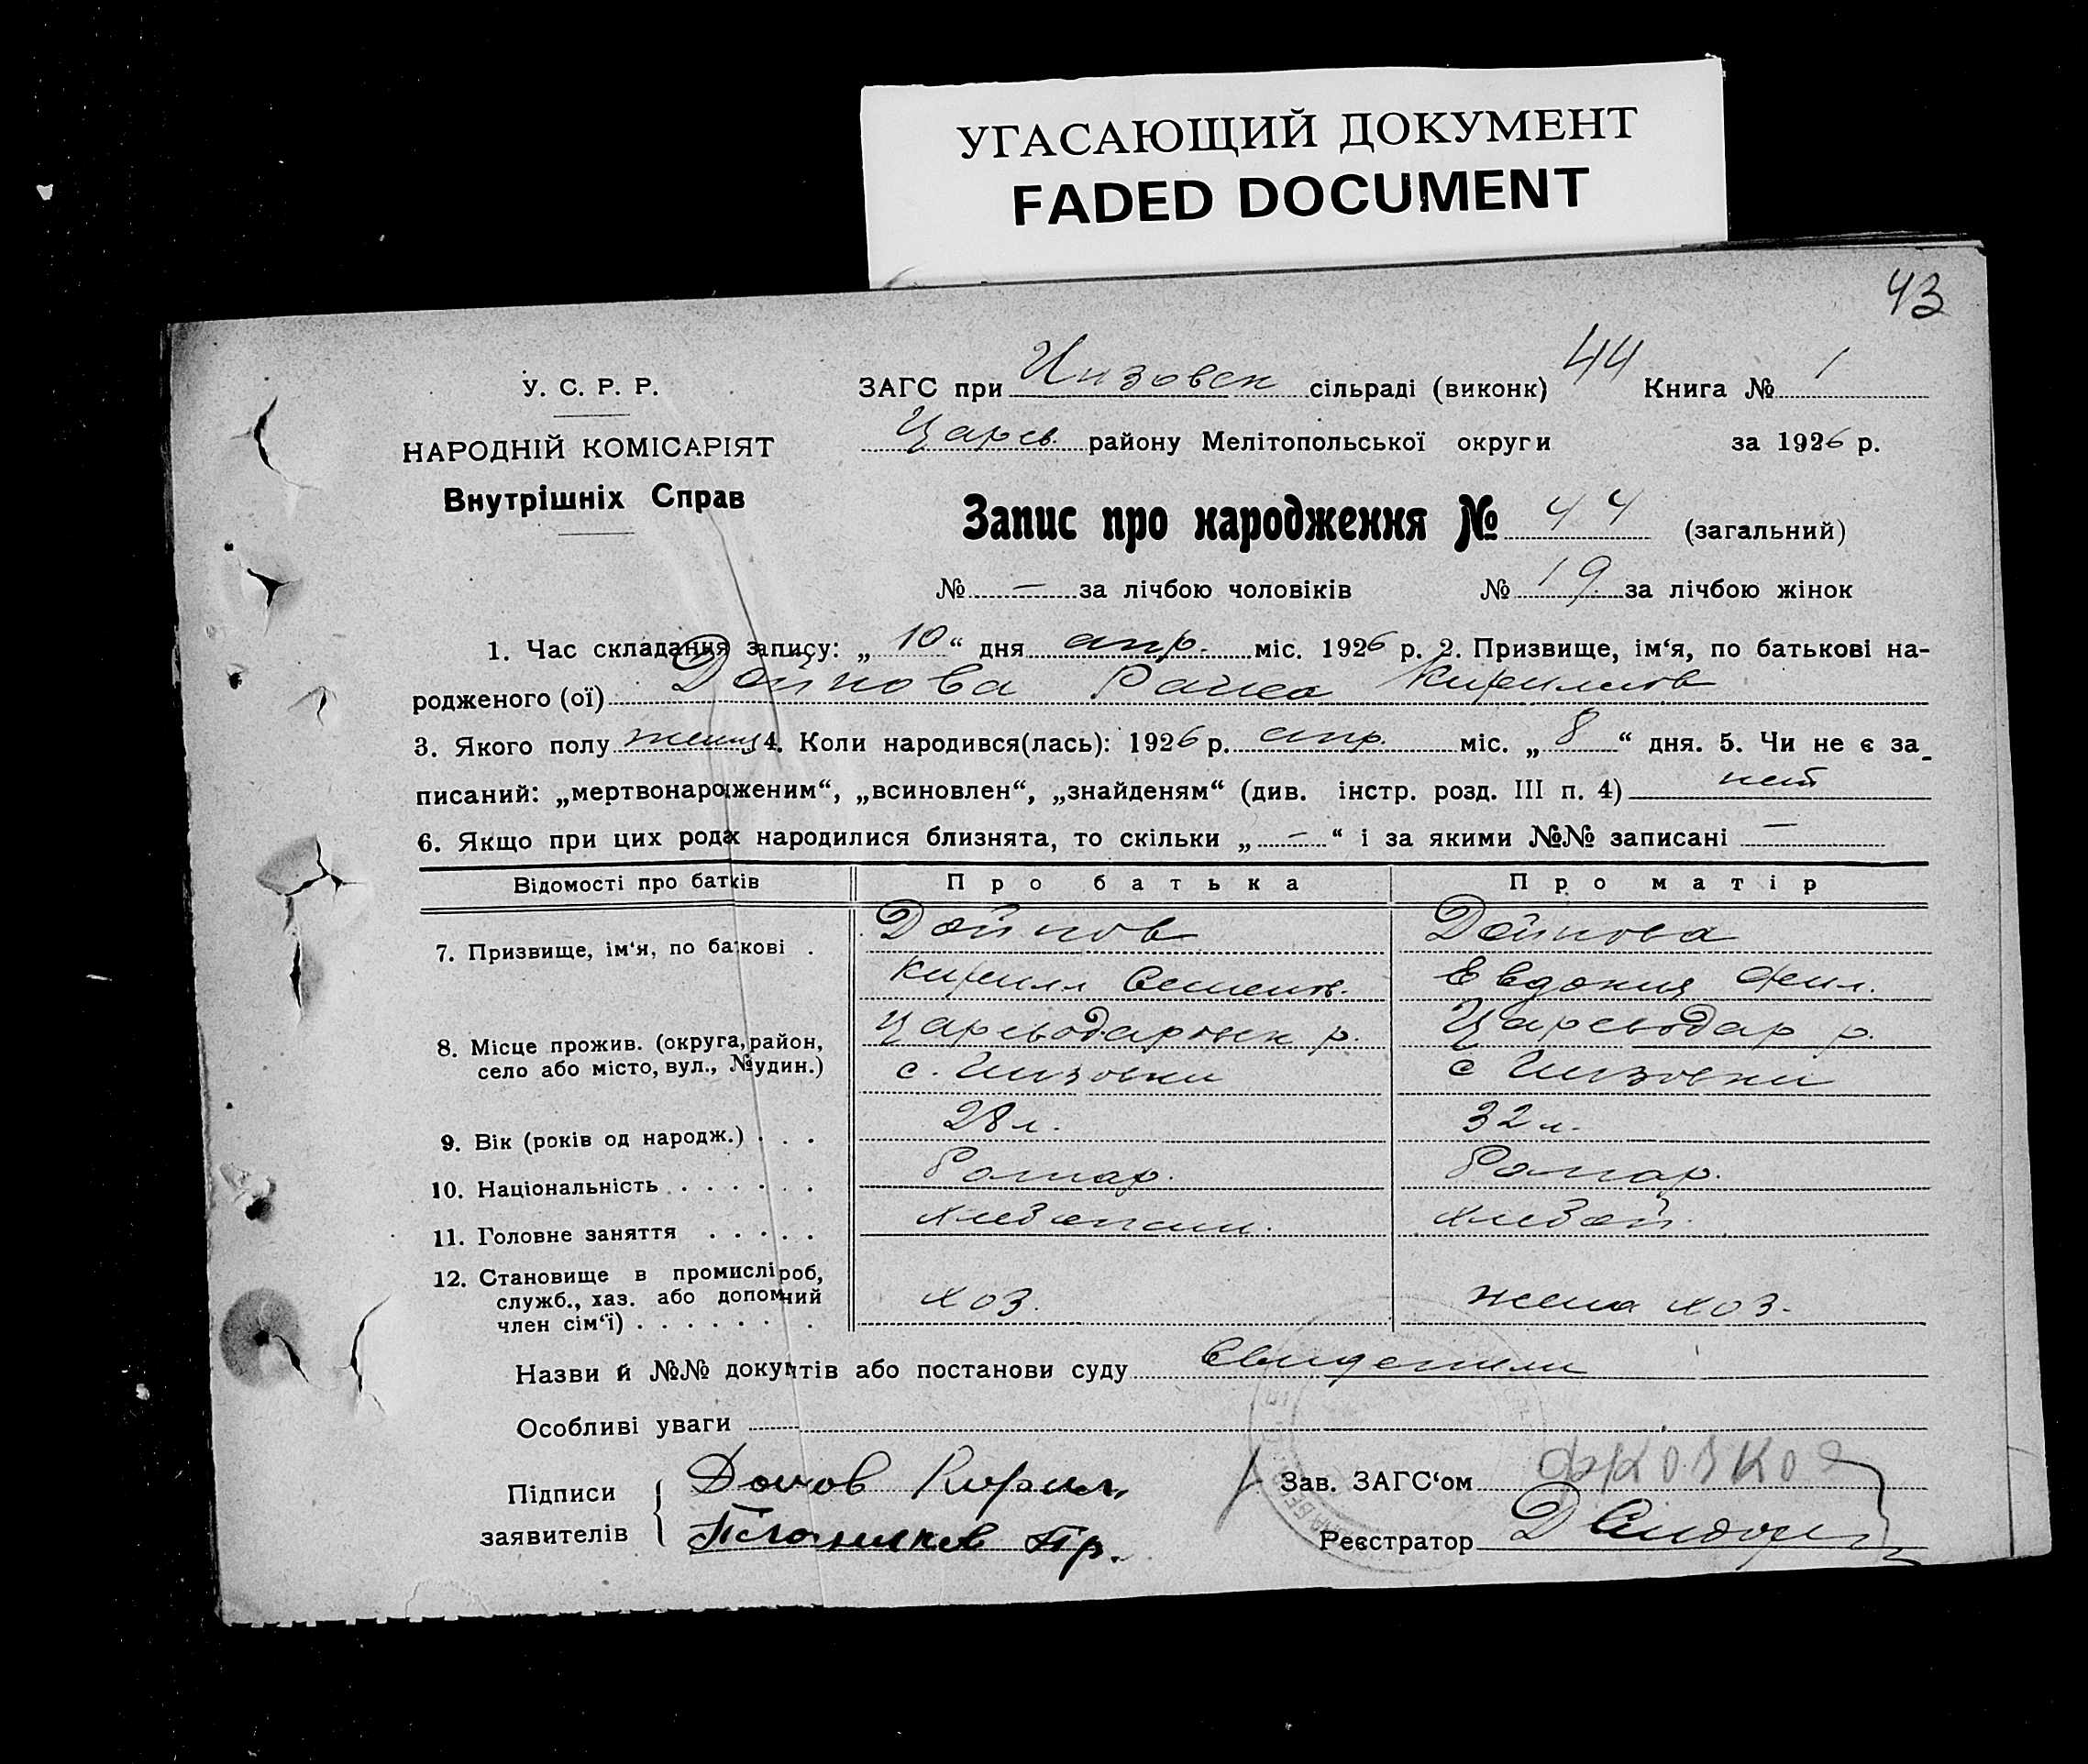 УГАСАЮЩИЙ ДОКУМЕНТ
FADED DOCUMENT
43
У. С. Р. Р.
НАРОДНІЙ КОМІСАРІЯТ
Внутрішніх Справ
ЗАГС при Инзовск сільраді (виконк) 44 Книга № 1
Царев. району Мелітопольської округи за 1926 р.
Запис про народження № 44 (загальний)
№ - за лічбою чоловіків № 19 за лічбою жінок
1. Час складання запису: „ 10 “ дня апр. міс. 1926 р. 2. Призвище, ім‘я, по батькові на-
родженого (ої) Дойнова Раиса Кирилов
3. Якого полу женщ 4. Коли народився(лась): 1926 р. апр. міс. „ 8 “ дня. 5. Чи не є за-
писаний: „мертвонародженим“, „всиновлен“, „знайденям“ (див. інстр. розд. III п. 4) нет
6. Якщо при цих родах народилися близнята, то скільки „ - “ і за якими №№ записані —
Відомості про батків Про батька Про матір
7. Призвище, ім‘я, по баткові . Дойнов Дойнова
Кирилл Семенов. Евдокия Фил.
8. Місце прожив. (округа, район, Цареводаровск р. Цареводар р.
село або місто, вул., № будин.) с. Инзовки с Инзовки
9. Вік (років од народж.) . . . 28 л. 32 л.
10. Національність . . . . . . Болгар. Болгар.
11. Головне заняття . . . . . хлебопаш. хлебоп.
12. Становище в промислі роб,
служб., хаз. або допомжний хоз. жена хоз.
член сім‘ї) . . . . . . .
Назви й №№ документів або постанови суду Свидетели
Особливі уваги
Підписи Дойнов Кирил. Зав. ЗАГС‘ом
заявителів Реєстратор